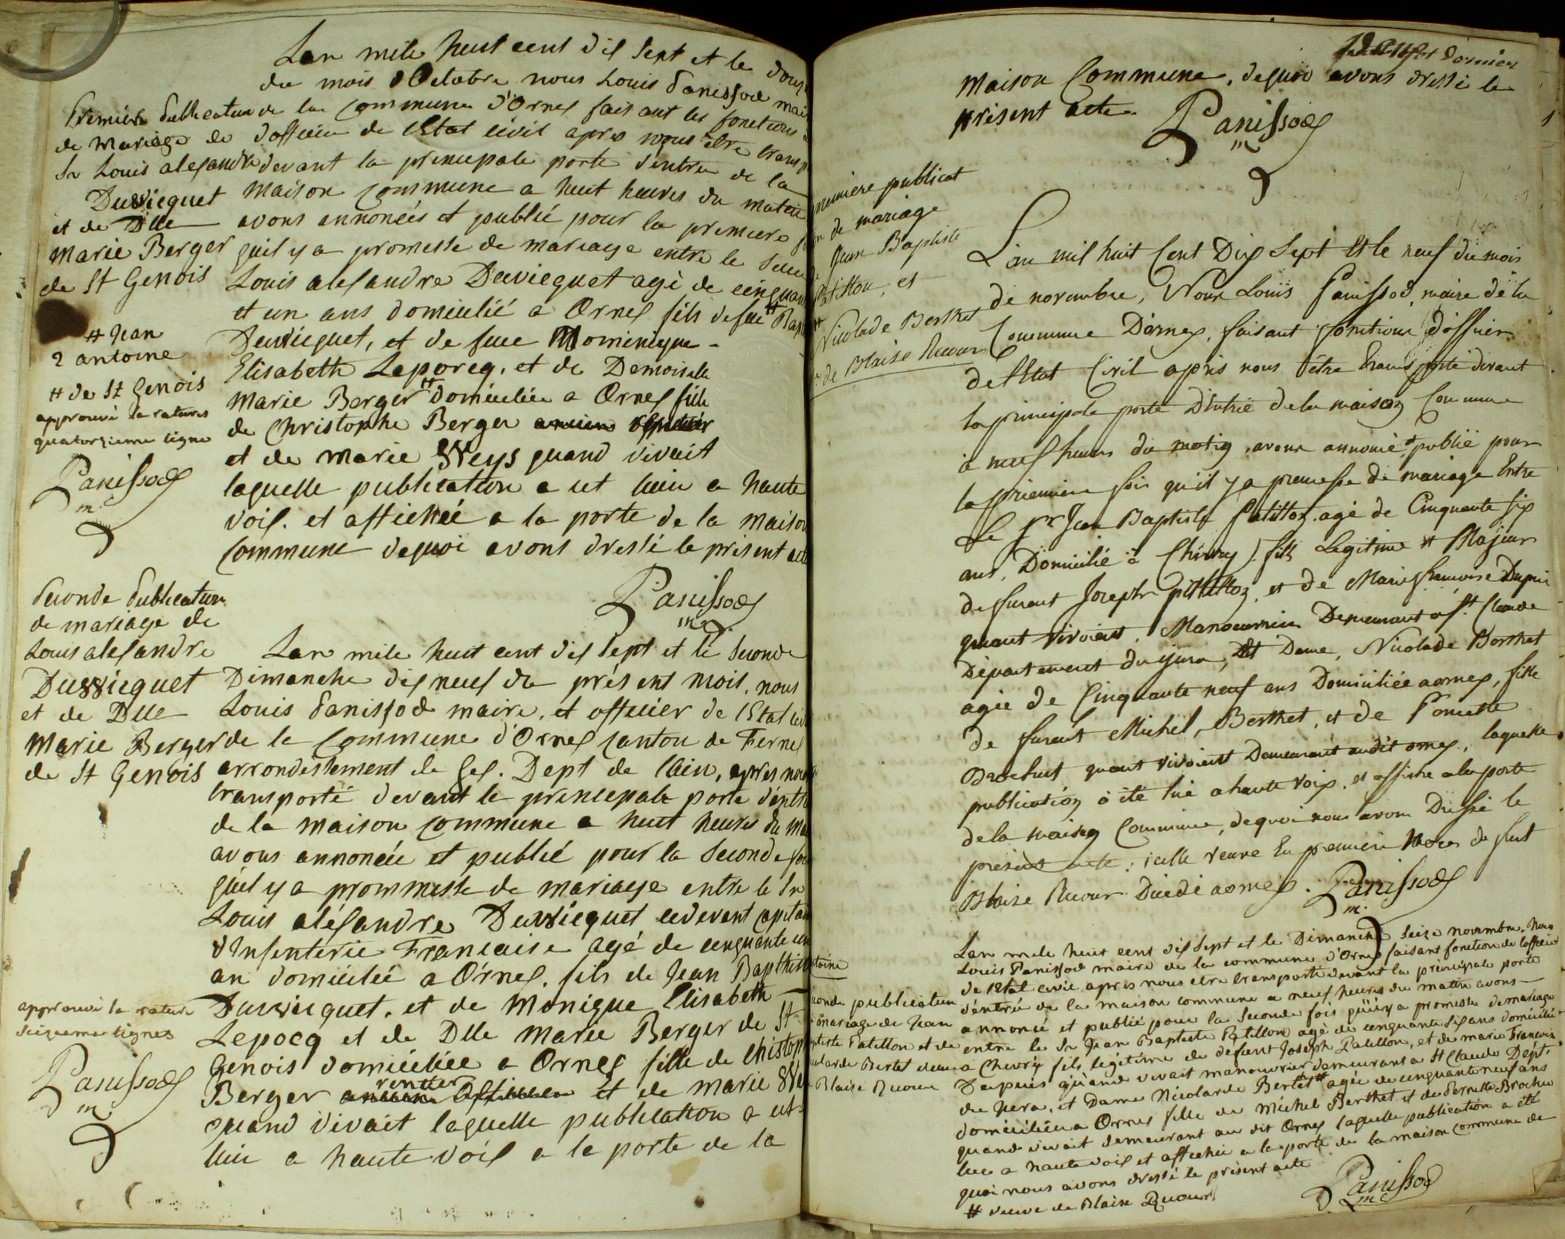 Lan mile huit cent dix Sept et le douz
du mois dOctobre nous Louis Panissod mai
de la Commune d'Ornex faisant les fonctions
d'officier de lEtat civil apres nous etre transp
devant la principale porte dentree de la
maison Commune a huit heures du matin
avons annoncés et publié pour la premiere
quil y a promesse de mariage entre le Sieur
Louis alexandre Duvicquet agé de cinquan
et un ans domicilié a Ornex fils de feu # Bap
Duvicquet, et de feue Mominique -
Elisabeth Leporcq, et de Demoiselle
Marie Berger # domiciliée a Ornex fille
de Christophe Berger ancien officier
et de marie Weys quand vivait
laquelle publication a eut lieu a haute
voix. et affichée a la porte de la maison
Commune dequoi avons dressé le présent acte
Panissod
m
Premiere Publication
de Mariage de
Sr Louis alexandre
Duvicquet
et de Dlle
Marie Berger
de St Genois
# Jean
2 antoine
# de St Genois
approuvé la rature
quatorzieme ligne
Panissod
m
Seconde Publication
de mariage de
Louis alexandre
Duvicquet
et de Dlle
Marie Berger
de St Genois
Lan mile huit cent dix sept et le Seconde
Dimanche dix neuf du présent mois, nous
Louis Panissod maire, et officier de lEtat civ
de la Commune d'Ornex canton de Ferne
arrondissement de Gex. Dept de lAin, apres nou
transporté devant la principale porte dentré
de la maison commune a huit heures du ma
avons annoncée et publié pour la Seconde foi
quil y a prommesse de mariage entre le Sr
Louis aléxandre Duvicquet cidevant capitai
d'Infenterie Francaise agé de cinquante un
an domicilié a Ornex. fils de Jean Baptiste
Duvicquet, et de Monique Elisabeth -
Lepocq et de Dlle Marie Berger de St
Genois domiciliée a Ornex fille de Chistop
Berger rentier ancien Officier et de marie We
quand vivait laquelle publication a ut
lieu a haute voix a la porte de la
approuvé la rature
Seizieme lignes
Panissod
m
maison Commune, dequoi avons dressé le
présent acte
Panissod
m
premiere publicat
de mariage
Jean Baptiste
Patillon, et
Nicolade Berthet
de Blaise Ducour
L'an mil huit Cent Dix Sept Et le neuf du mois
de novembre, Nous Louis Panissod, maire de la
Commune D'ornex, faisant fonctions d'officier
de lEtat Civil après nous être transporté devant
la principale porte D'entrée de la maison Commune
à neuf heures du matin, avons annoncé et publié pour
la premiere fois qu'il y a promesse de mariage Entre
Le Sr Jean Baptiste Patillon agé de Cinquante six
ans, Domicilié à Chivry, fils Legitime et Majeur
de furent Joseph patillon, et de Marie francoise Dupui
quant vivoient, Manouvrier Demeurant a St Claude
Département du jura, Et Dame, Nicolade Berthet
agée de Cinquante neuf ans Domiciliée a ornex, fille
de furent Michel, Berthet, et de Pernette
Brochut quant vivoient Demeurant audit ornex, laquelle
publication à été lüe a haute voix, et affiche a la porte
de la maison Commune, de quoi nous avons Dressé le
présent acte: icelle veuve En premiere Noces de fut
Blaise Ducour Décédé a ornex. Panissod
m
Lan mile huit cent dix sept et le Dimanche seize novembre, Nous
Louis Panissod maire de la commune d'Ornex faisant fonction de lofficier
de lEtat civil, apres nous etre transporté devant la principale porte
d'entrée de la maison commune a neuf heures du matin avons —
annoncé et publié pour la seconde fois quil y a promesse de mariage
entre le Sr Jean Baptiste Patillon agé de cinquante six ans domicilié
a Chevry fils legitime de defunt Joseph Patillon, et de marie Francoise
Dupuis quand vivait manouvrier demeurant a St Claude Dept
du Jura, et Dame Nicolarde Bertet # agée de cinquante neuf ans
domiciliée a Ornex fille de Michel Berthet et de Pernette Brochu
quand vivait demeurant au dit Ornex laquelle publication a été
luee a haute voix et affichée a la porte de la maison commune de
quoi nous avons dressé le présent acte
# veuve de Blaise Ducour
Panissod
m
toine
conde publication
mariage de Jean
ptiste Patillon et de
olarde Bertet veuve
Blaise Ducour